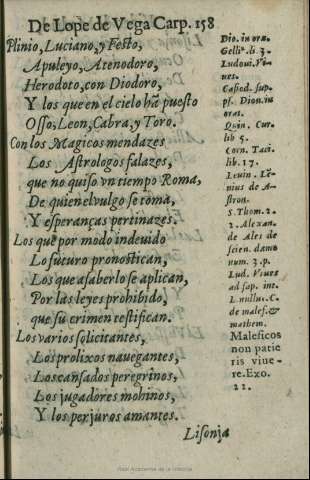 De Lope de Vega Carp. 158
Plinio, Luciano, y Festo,
Apuleyo, Atenodoro,
Herodoto, con Diodoro,
Y los que en el cielo hā puesto
Osso, Leon, Cabra, y Toro.
Con los Magicos mendazes
Los Astrologos falazes,
que no quiso vn tiempo Roma,
De quien el vulgo se toma,
Y esperanças pertinazes
Los que por modo indeuido
Lo futuro pronostican,
Los que a saberlo se aplican,
Por las leyes prohibido,
que su crimen testifican.
Los varios solicitantes,
Los prolixos nauegantes,
Los cansados peregrinos,
Los jugadores mohinos,
Y los perjuros amantes.
Lisonja
Dio. in
Gelli. li. 3.
Ludoui. Vi-
ues.
Casiod. sup.
ps. Dion. in
orat.
Quin. Cur.
lib 5.
Corn. Taci.
lib. 17.
Leuin. Lē-
nius de A-
stron.
S. Thom. 2.
2. Alexan.
de Ales de
scien. dæmo
num. 3. p.
Lud. Viues
ad sap. int.
L nullus. C.
de malef. &
mathem.
Maleficos
non patie
ris viue-
re. Exo.
22.
Real Academia de la Historia